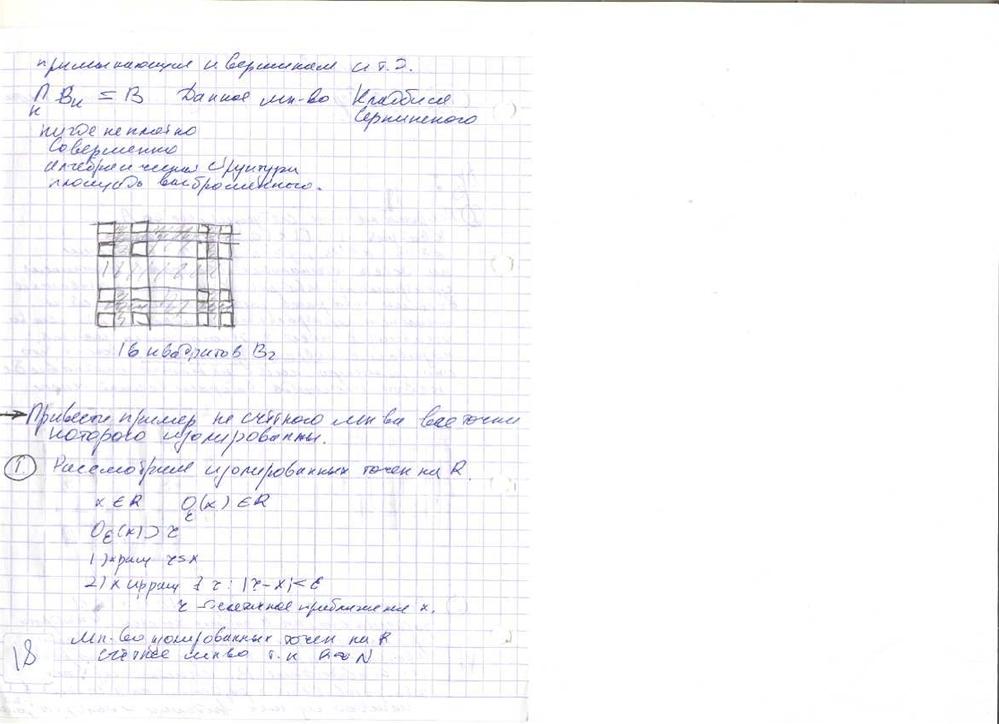 примыкающих к вершинам и т.д.
∩ Bₙ = B Данное мн-во Кладбище
n Серпинского
нигде не плотно
Совершенно
структура
площадь выброшенного.
16 квадратов B₂
→ Привести пример не счётного мн-ва все точки
которого изолированны.
① Рассмотрим изолированных точек на R.
x ∈ R O_ε(x) ∈ R
O_ε(x) ∋ r
1) x рац r = x
2) x иррац ∃ r : |r - x| < ε
r - приближение x.
Мн-во изолированных точек на R
счётное мн-во т.к N
18